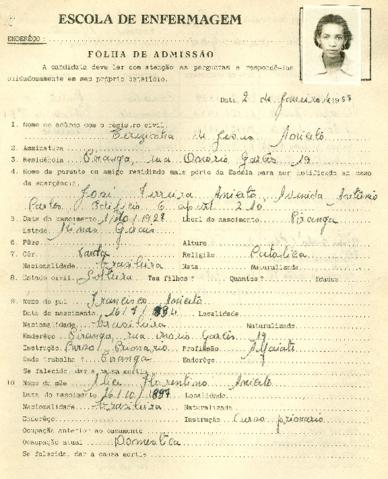 ESCOLA DE ENFERMAGEM
ENDERÊÇO:
FOLHA DE ADMISSÃO
A candidata deve ler com atenção as perguntas e respondê-las
cuidadosamente em seu próprio benefício.
Data 2 de 1953
1. Nome de acôrdo com o registro civil
Terezinha de Aniceto
2. Assinatura
3. Residência Piranga, rua Onorio 19
4. Nome do parente ou amigo residindo mais perto da Escola para ser notificado em caso
de emergência:
José Ferreira Aniceto, Avenida Antônio
Edifício 6 apart 210
5. Data do nascimento 1928 Lugar do nascimento Piranga
Estado Minas Gerais
6. Pêso Altura
7. Côr Parda Religião Catolica
Nacionalidade Brasileira Nata Naturalizada
8. Estado civil Solteira Tem filhos? Quantos? Idades
9. Nome do pai Francisco Aniceto
Data do nascimento 16/7/894 Localidade
Nacionalidade Brasileira Naturalizado
Enderêço Piranga, rua Onorio 19
Instrução Curso Primario Profissão Alfaiate
Onde trabalha? Piranga Enderêço
Se falecido dar a causa mortis
10. Nome da mãe Alice Florentino Aniceto
Data do nascimento 16/10/1897 Localidade
Nacionalidade Brasileira Naturalizada
Enderêço Instrução Curso primario
Ocupação anterior ao casamento
Ocupação atual Domestica
Se falecida, dar a causa mortis